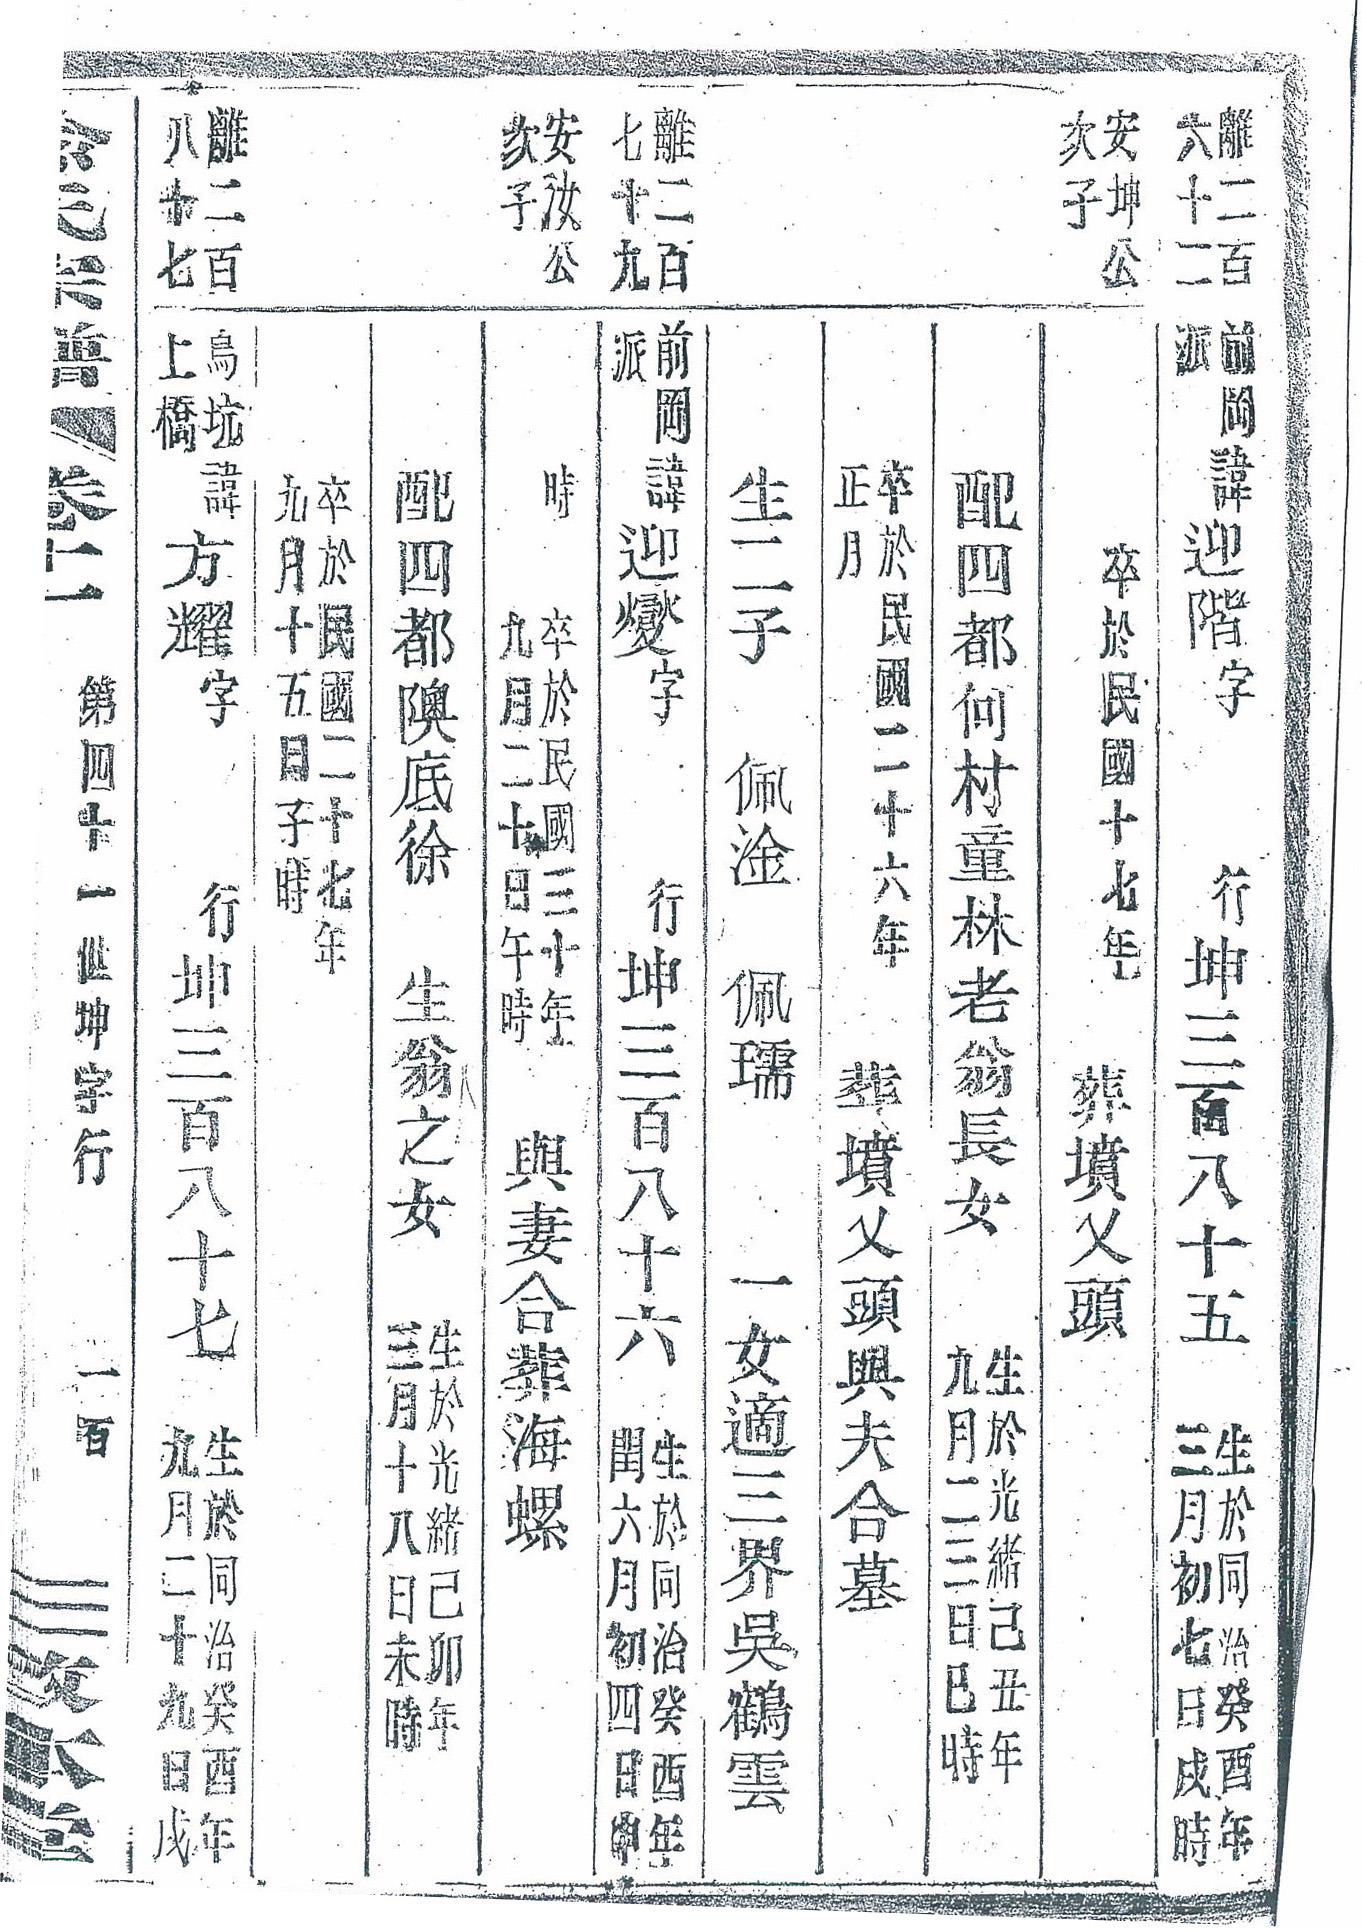 離二百
六十二
前岡
派
諱迎階字
行坤三百八十五
生於同治癸酉年
三月初七日戌時
安坤公
次子
卒於民國十七年
葬墳乂頭
配四都何村童林老翁長女
生於光緒己丑年
九月二三日巳時
卒於民國二十六年
正月
葬墳乂頭與夫合墓
生二子 佩淦 佩瓀 一女適三界吳鶴雲
離二百
七十九
前岡
派
諱迎燮字
行坤三百八十六
生於同治癸酉年
閏六月初四日申
時
安汝公
次子
卒於民國三十年
九月二十日午時
與妻合葬海螺
配四都隩底徐 生翁之女
生於光緒己卯年
三月十八日未時
卒於民國二十七年
九月十五日子時
離二百
八十七
烏坑
上橋
諱方耀字
行坤三百八十七
生於同治癸酉年
九月二十九日戌
氏宗譜 卷十一 第四十一世坤字行 一百